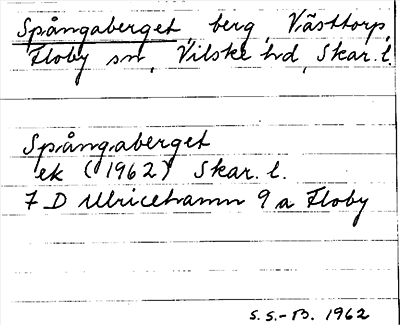 Spångaberget, berg, Västtorp,
Floby sn, Vilske hd, Skar. l.
Spångaberget
ek (1962) Skar. l.
7 D Ulricehamn 9 a Floby
S.S.-B. 1962